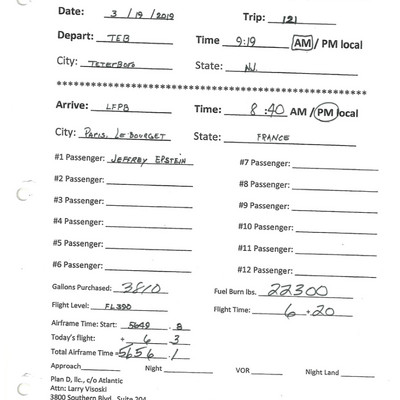 Date: 3/19/2019 Trip: 121
Depart: TEB Time 9:19 AM / PM local
City: TETERBORO State: NJ.
****************************************
Arrive: LFPB Time: 8:40 AM / PM local
City: PARIS, LE BOURGET State: FRANCE
#1 Passenger: JEFFREY EPSTEIN #7 Passenger:
#2 Passenger: #8 Passenger:
#3 Passenger: #9 Passenger:
#4 Passenger: #10 Passenger:
#5 Passenger: #11 Passenger:
#6 Passenger: #12 Passenger:
Gallons Purchased: 3810 Fuel Burn lbs. 22300
Flight Level: FL390 Flight Time: 6+20
Airframe Time: Start: 5649 .8
Today's flight: + 6 3
Total Airframe Time = 5656 .1
Approach Night VOR Night Land
Plan D, llc, c/o Atlantic
Attn: Larry Visoski
3800 Southern Blvd, Suite 204